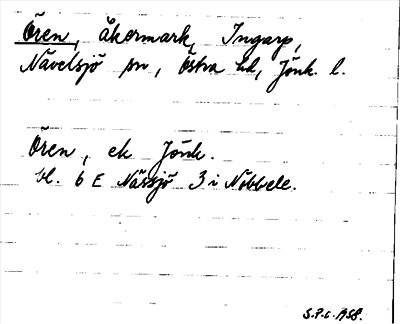 Ören, åkermark, Ingarp,
Nävelsjö sn, Östra hd, Jönk. l.
Ören, ek Jönk.
bl. 6 E Nässjö 3 i Nobbele.
S.P.C. A58.